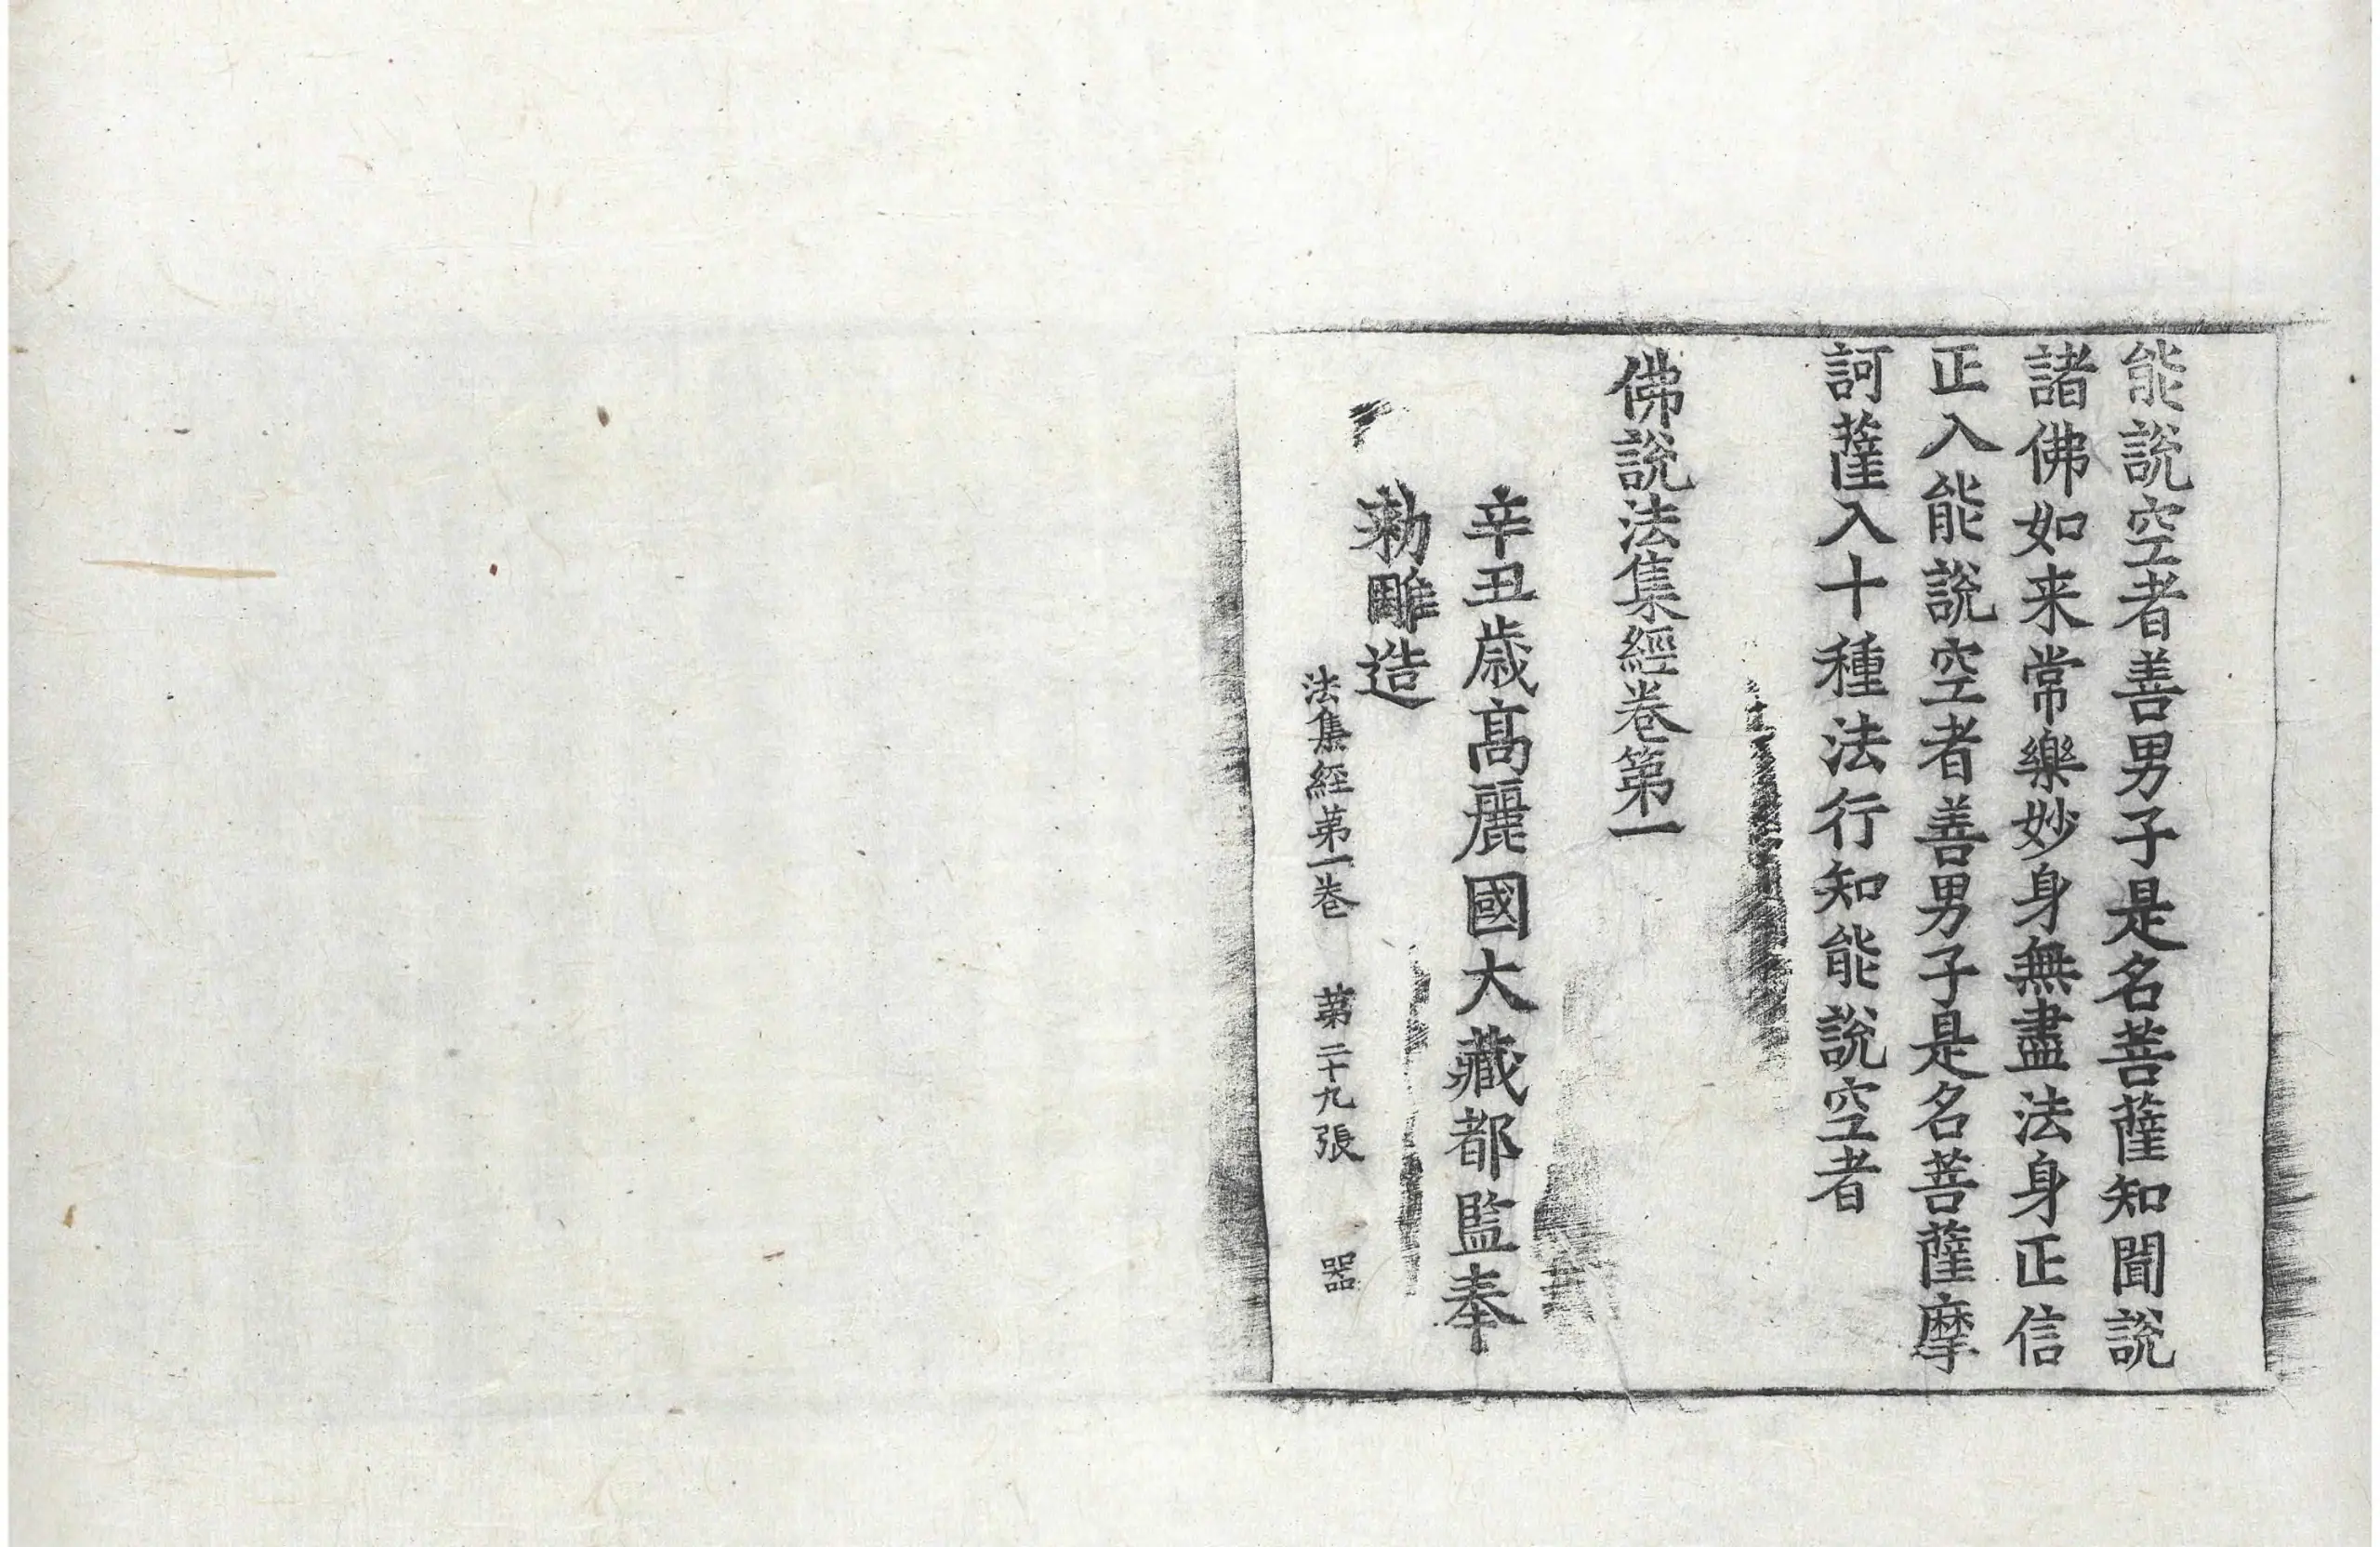 能説空者善男子是名菩薩知聞説
諸佛如来常樂妙身無盡法身正信
正入能説空者善男子是名菩薩摩
訶薩入十種法行知能説空者
佛説法集經卷第一
辛丑歳髙麗國大藏都監奉
勅雕造
法集經第一卷 第二十九張 器